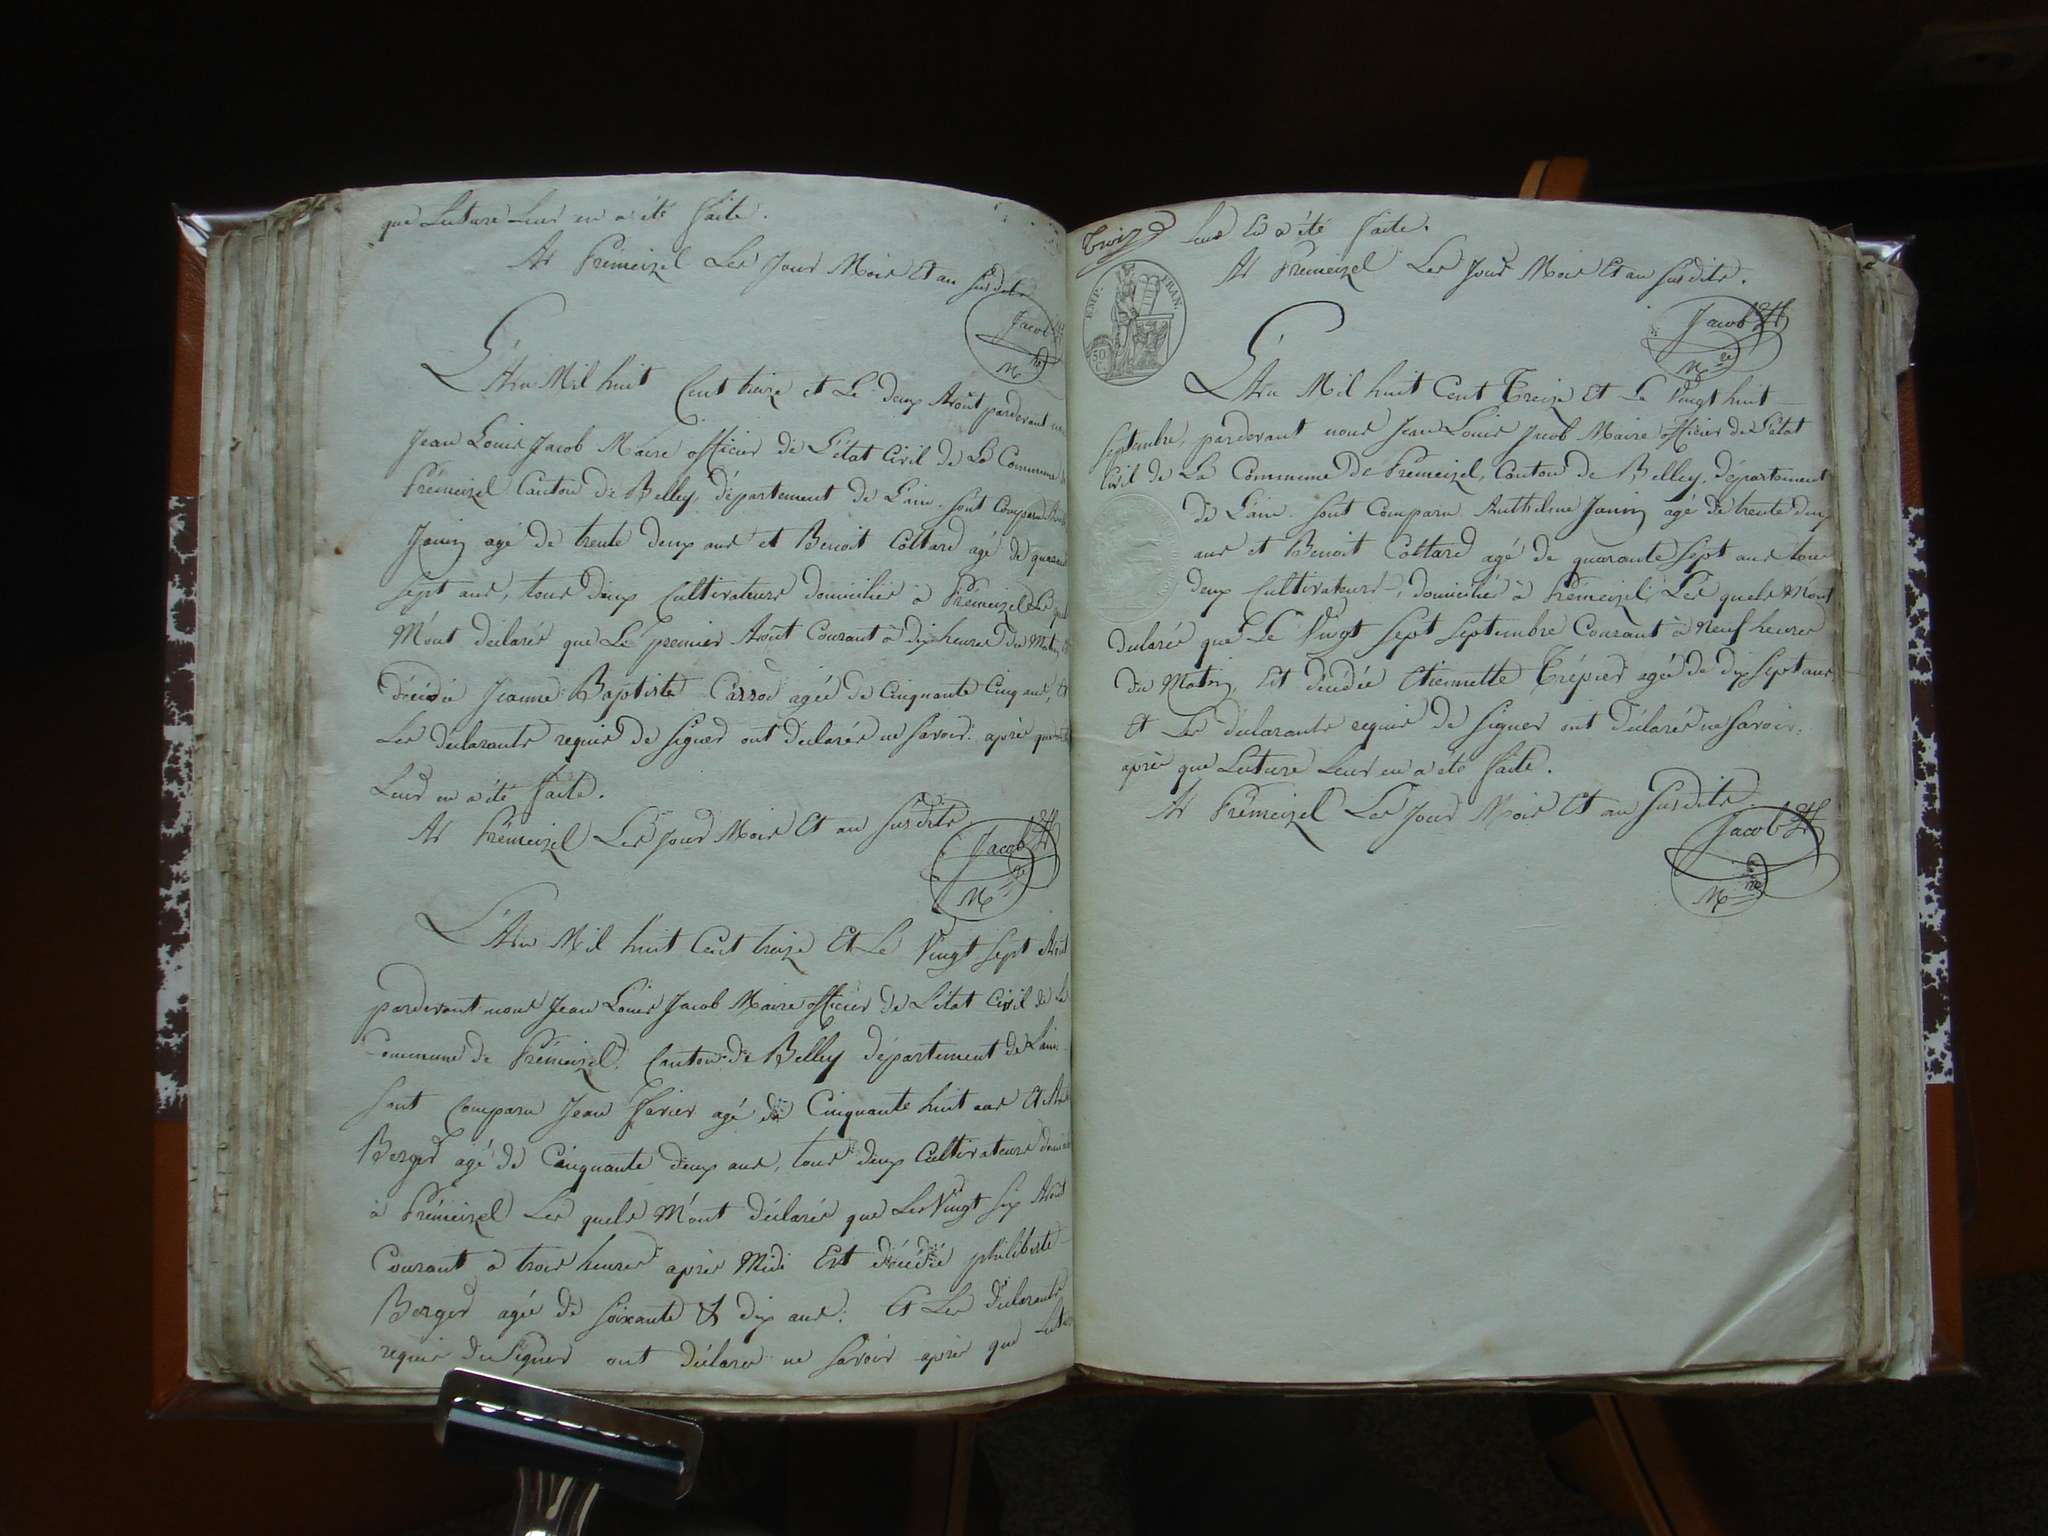 que Lecture Leur en a été faite.
At Prémeizel Les Jour Mois Et an Susdits
Jacob
M re
L'An Mil huit Cent treize et Le deux Août pardevant nous
Jean Louis Jacob Maire officier de L'état Civil de La Commune de
Prémeizel Canton de Belley, département de L'ain. sont Comparu
Janin agé de trente deux ans et Benoit Cottard agé de quarante
sept ans, tous deux Cultivateurs domiciliés à Prémeizel Les quels
M'ont déclarés que Le premier Août Courant à dix heures du Matin
décédée Jeanne Baptiste Carrod agée de Cinquante Cinq ans, Et
Les déclarants requis de Signer ont déclarés ne Savoir. après que
Leur en a été faite.
At Prémeizel Les Jour Mois Et an Susdits
Jacob
M re
L'An Mil huit Cent treize Et Le Vingt Sept Août
pardevant nous Jean Louis Jacob Maire officier de L'état Civil de La
Commune de Prémeizel. Canton de Belley département de L'ain
sont Comparu Jean Favier agé de Cinquante huit ans Et
Berger agé de Cinquante deux ans, tous deux Cultivateurs
à Prémeizel Les quels M'ont déclarés que Les Vingt Six Août
Courant à trois heures après Midi Est décédée philiberte
Berger agée de Soixante & dix ans. Et Les déclarants
requis de Signer ont déclarés ne Savoir après que
Treize
Leur En a été faite.
At Prémeizel Les Jour Mois Et an Susdits.
EMP. FRAN.
50
C.
Jacob
M re
L'An Mil huit Cent Treize Et Le Vingt huit
Septembre, pardevant nous Jean Louis Jacob Maire officier de L'état
Civil de La Commune de Prémeizel, Canton de Belley, département
de L'ain. sont Comparu Anthelme Janin agé de trente deux
ans et Benoit Cottard agé de quarante Sept ans tous
deux Cultivateurs, domiciliés à Prémeizel, Les quels M'ont
déclarés que Le Vingt Sept Septembre Courant à neuf heures
du Matin, Est décédée Etiennette Trépier agée de dix Sept ans
Et Les déclarants requis de Signer ont déclarés ne Savoir.
après que Lecture Leur en a été faite.
At Prémeizel Les Jour Mois Et an Susdits.
Jacob
M re